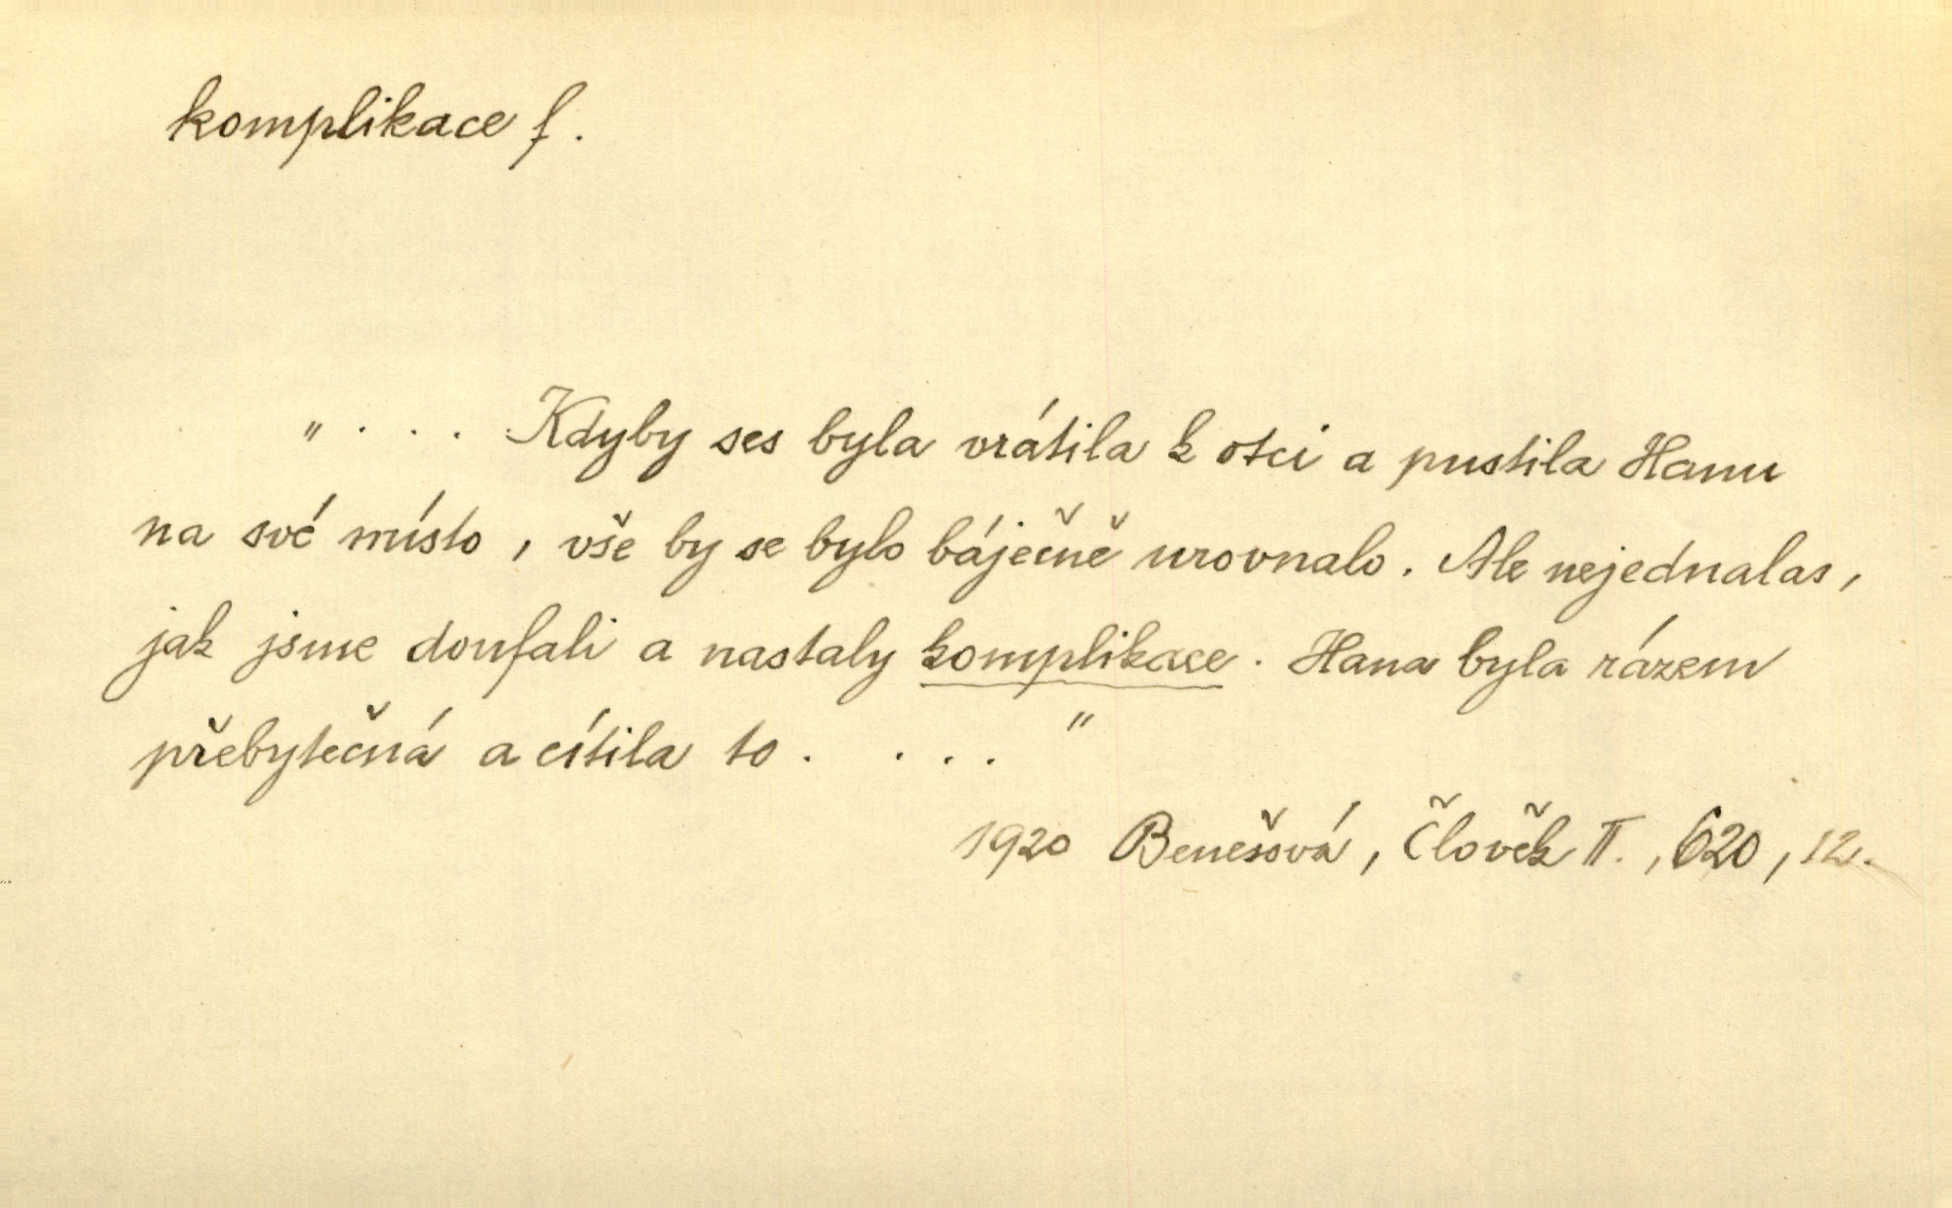 komplikace f.
" . . . Kdyby ses byla vrátila k otci a pustila Hanu
na své místo, vše by se bylo báječně urovnalo. Ale nejednalas,
jak jsme doufali a nastaly komplikace. Hana byla rázem
přebytečná a cítila to . . . . "
1920 Benešová, Člověk II., 620, 12.